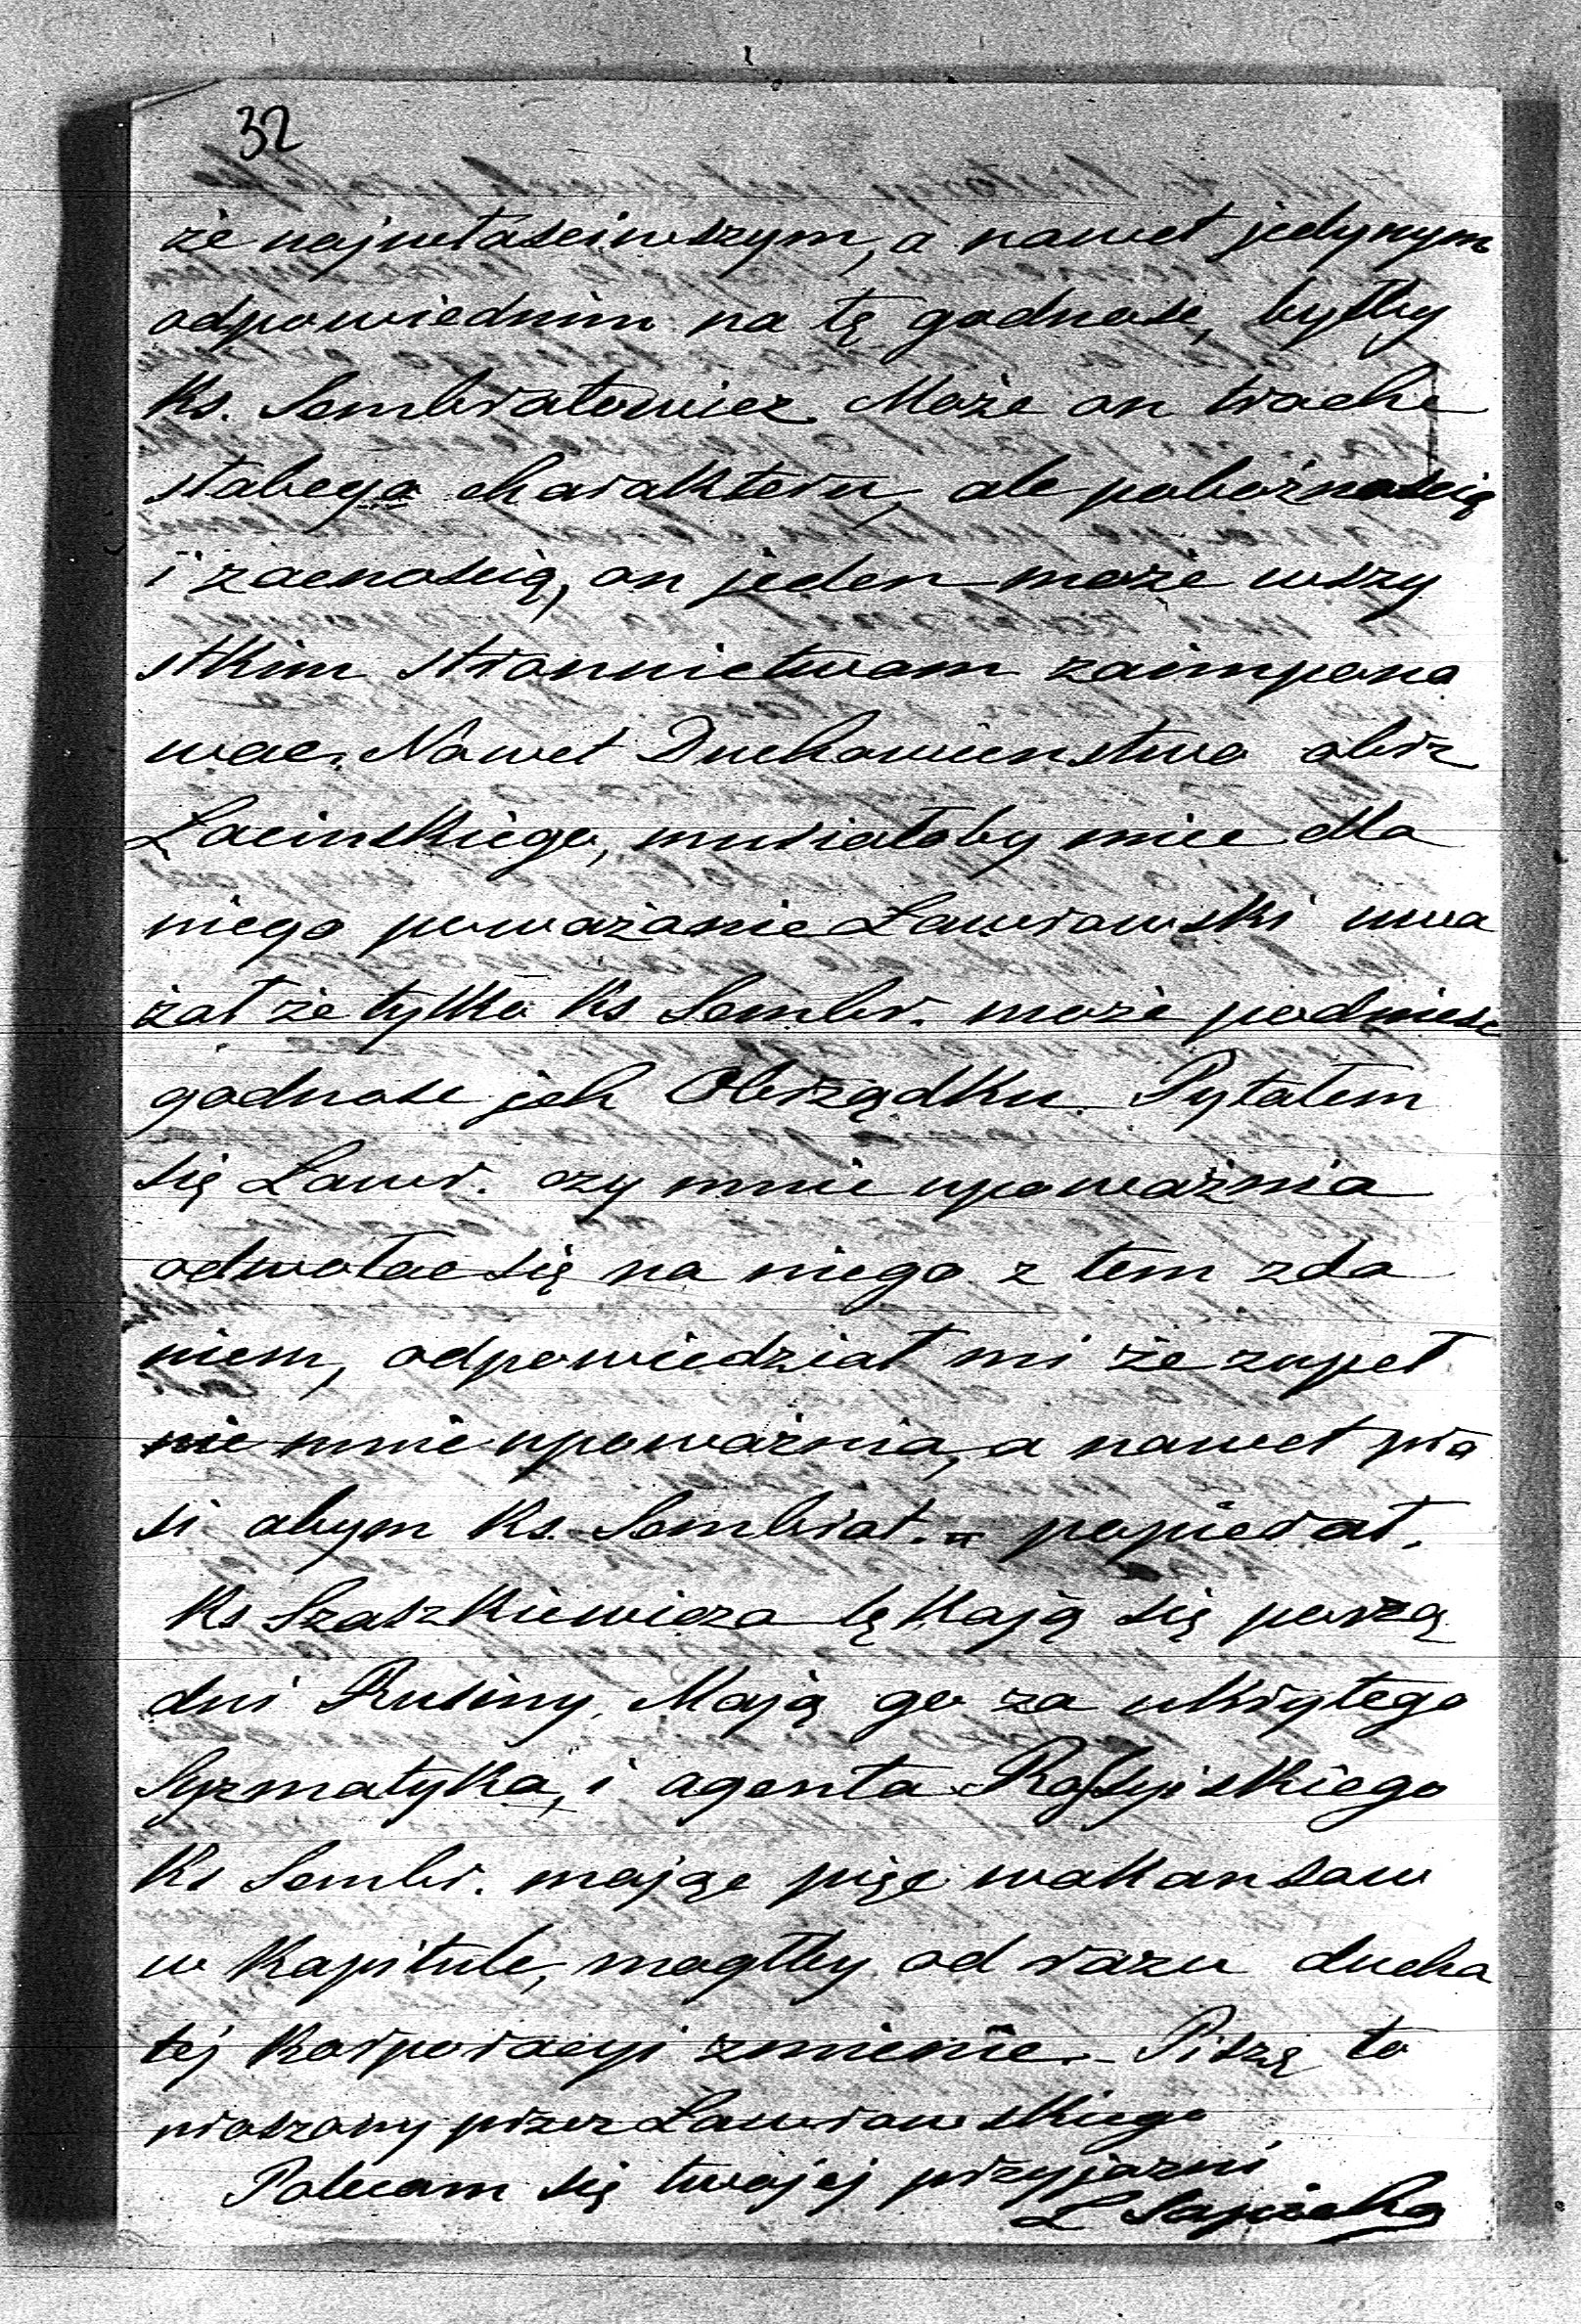 32
że najwłasciwszym, a nawet jedynym
odpowiednim na tę godnosc, byłby
Ks. Sembratowicz. Może on troche
słabego charakteru, ale pobożnoscią
i zacnoscią, on jeden może wszy
stkim stronnictwam zaimpono
wac. Nawet Duchowienstwo obrz
Łacinskiego, musiałoby miec dla
niego poważanie Ławrowski uwa
żał że tylko Ks Sembr. może podniesc
godnosc ich Obrządku. Pytałem
się Ławr. czy mnie upoważnia
odwołac się na niego z tem zda
niem, odpowiedział mi że zupeł
nie mnie upoważnia, a nawet pro
si abym Ks. Sembrat. popierał.
Ks Szaszkiewicza lękają się porzą
dni Rusiny. Mają go za ukrytego
Syzmatyka, i agenta Rossyiskiego
Ks Sembr. mając pięc wakansow
w Kapitule, mogłby od razu ducha
tej Korporacyi zmienic. Piszę to
proszony przez Ławrowskiego
Polecam się twojej przyjazni
L Sapieha